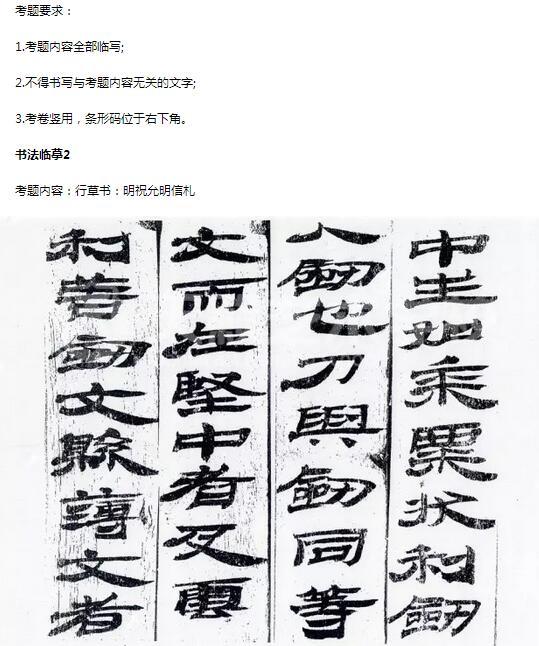 考题要求：
1.考题内容全部临写;
2.不得书写与考题内容无关的文字;
3.考卷竖用，条形码位于右下角。
书法临摹2
考题内容：行草书：明祝允明信札
中生如粟状利劒
劒也刀與劒同等
文而在堅中者及雲
利者劒文文者